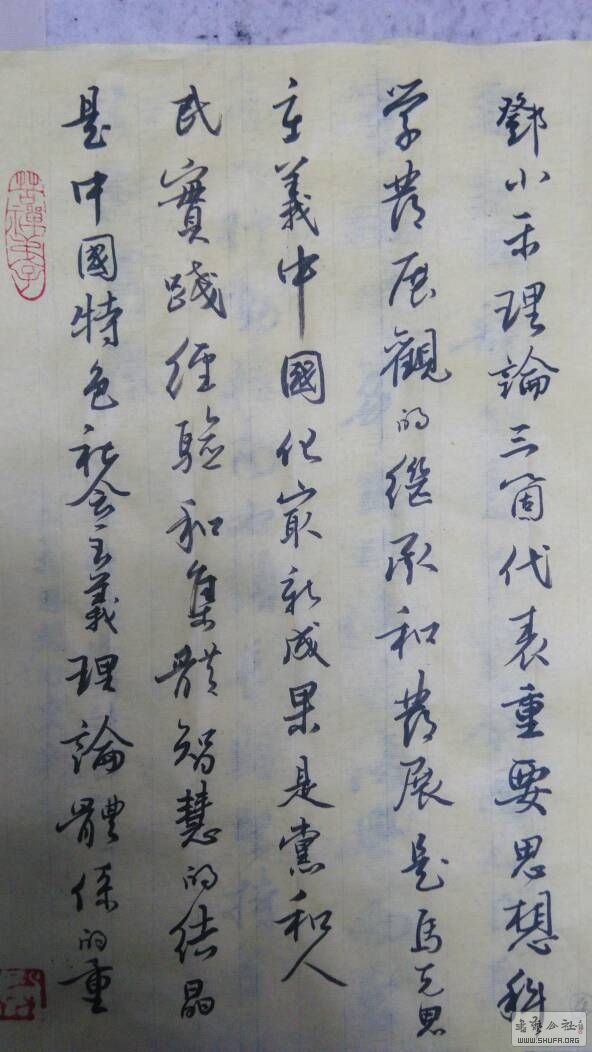 鄧小平理論三箇代表重要思想科
学發展觀的繼承和發展是馬克思
主義中國化宷新成果是黨和人
民實踐經驗和集體智慧的结晶
是中國特色社会主義理論體係的重
WWW.SHUFA.ORG